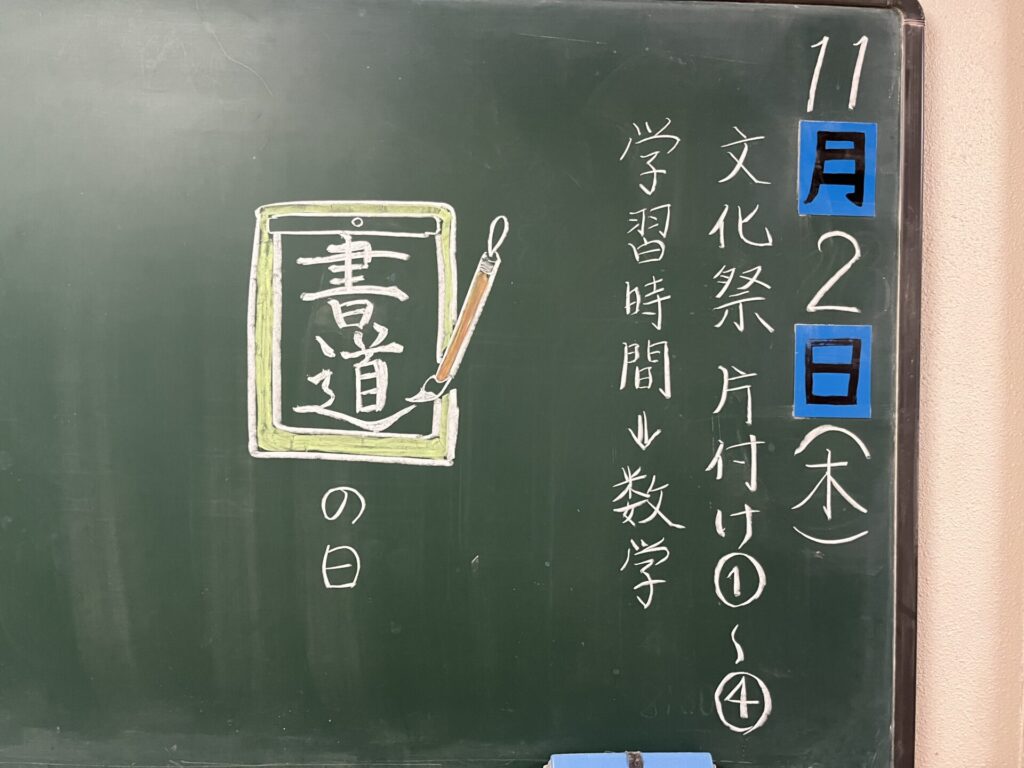 11月2日(木)
文化祭 片付け①~④
学習時間→数学
書道
の日